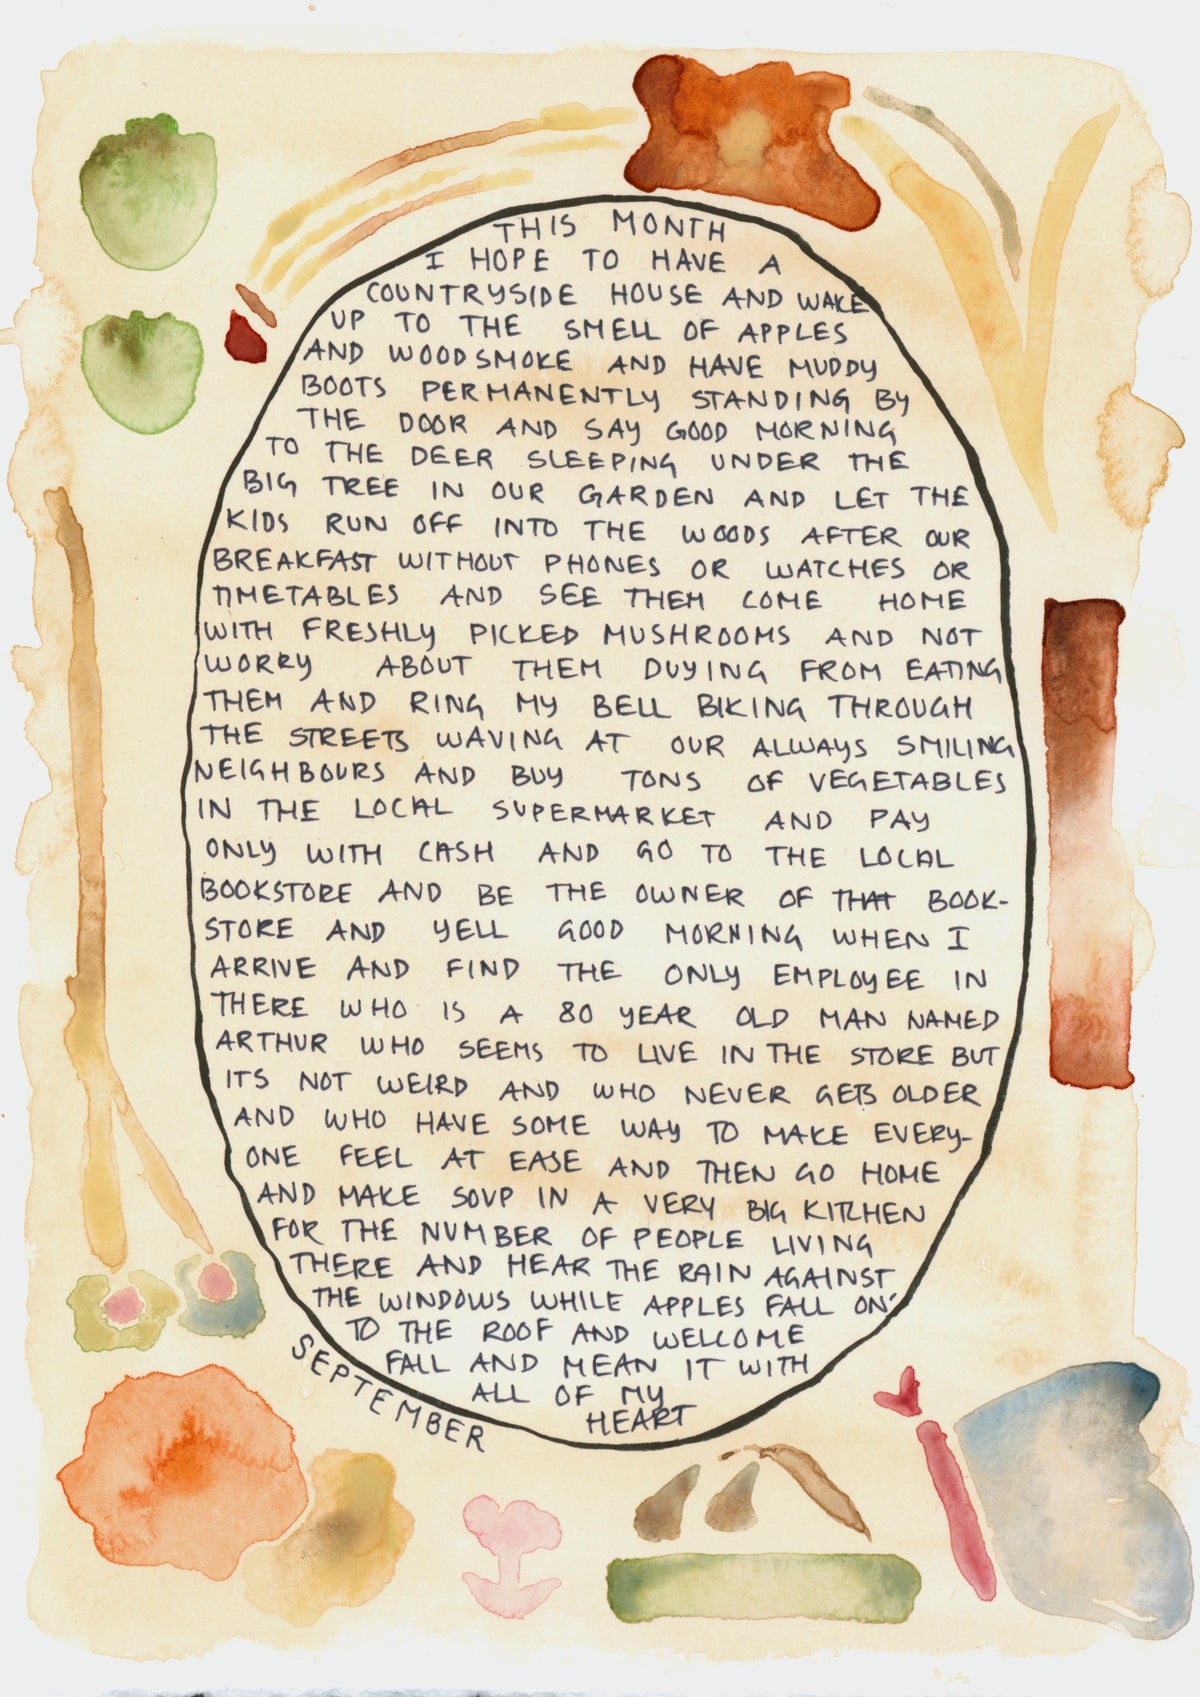 THIS MONTH
I HOPE TO HAVE A
COUNTRYSIDE HOUSE AND WAKE
UP TO THE SMELL OF APPLES
AND WOODSMOKE AND HAVE MUDDY
BOOTS PERMANENTLY STANDING BY
THE DOOR AND SAY GOOD MORNING
TO THE DEER SLEEPING UNDER THE
BIG TREE IN OUR GARDEN AND LET THE
KIDS RUN OFF INTO THE WOODS AFTER OUR
BREAKFAST WITHOUT PHONES OR WATCHES OR
TIMETABLES AND SEE THEM COME HOME
WITH FRESHLY PICKED MUSHROOMS AND NOT
WORRY ABOUT THEM DUYING FROM EATING
THEM AND RING MY BELL BIKING THROUGH
THE STREETS WAVING AT OUR ALWAYS SMILING
NEIGHBOURS AND BUY TONS OF VEGETABLES
IN THE LOCAL SUPERMARKET AND PAY
ONLY WITH CASH AND GO TO THE LOCAL
BOOKSTORE AND BE THE OWNER OF THAT BOOK-
STORE AND YELL GOOD MORNING WHEN I
ARRIVE AND FIND THE ONLY EMPLOYEE IN
THERE WHO IS A 80 YEAR OLD MAN NAMED
ARTHUR WHO SEEMS TO LIVE IN THE STORE BUT
ITS NOT WEIRD AND WHO NEVER GETS OLDER
AND WHO HAVE SOME WAY TO MAKE EVERY-
ONE FEEL AT EASE AND THEN GO HOME
AND MAKE SOUP IN A VERY BIG KITCHEN
FOR THE NUMBER OF PEOPLE LIVING
THERE AND HEAR THE RAIN AGAINST
THE WINDOWS WHILE APPLES FALL ON-
TO THE ROOF AND WELCOME
FALL AND MEAN IT WITH
ALL OF MY
HEART
SEPTEMBER